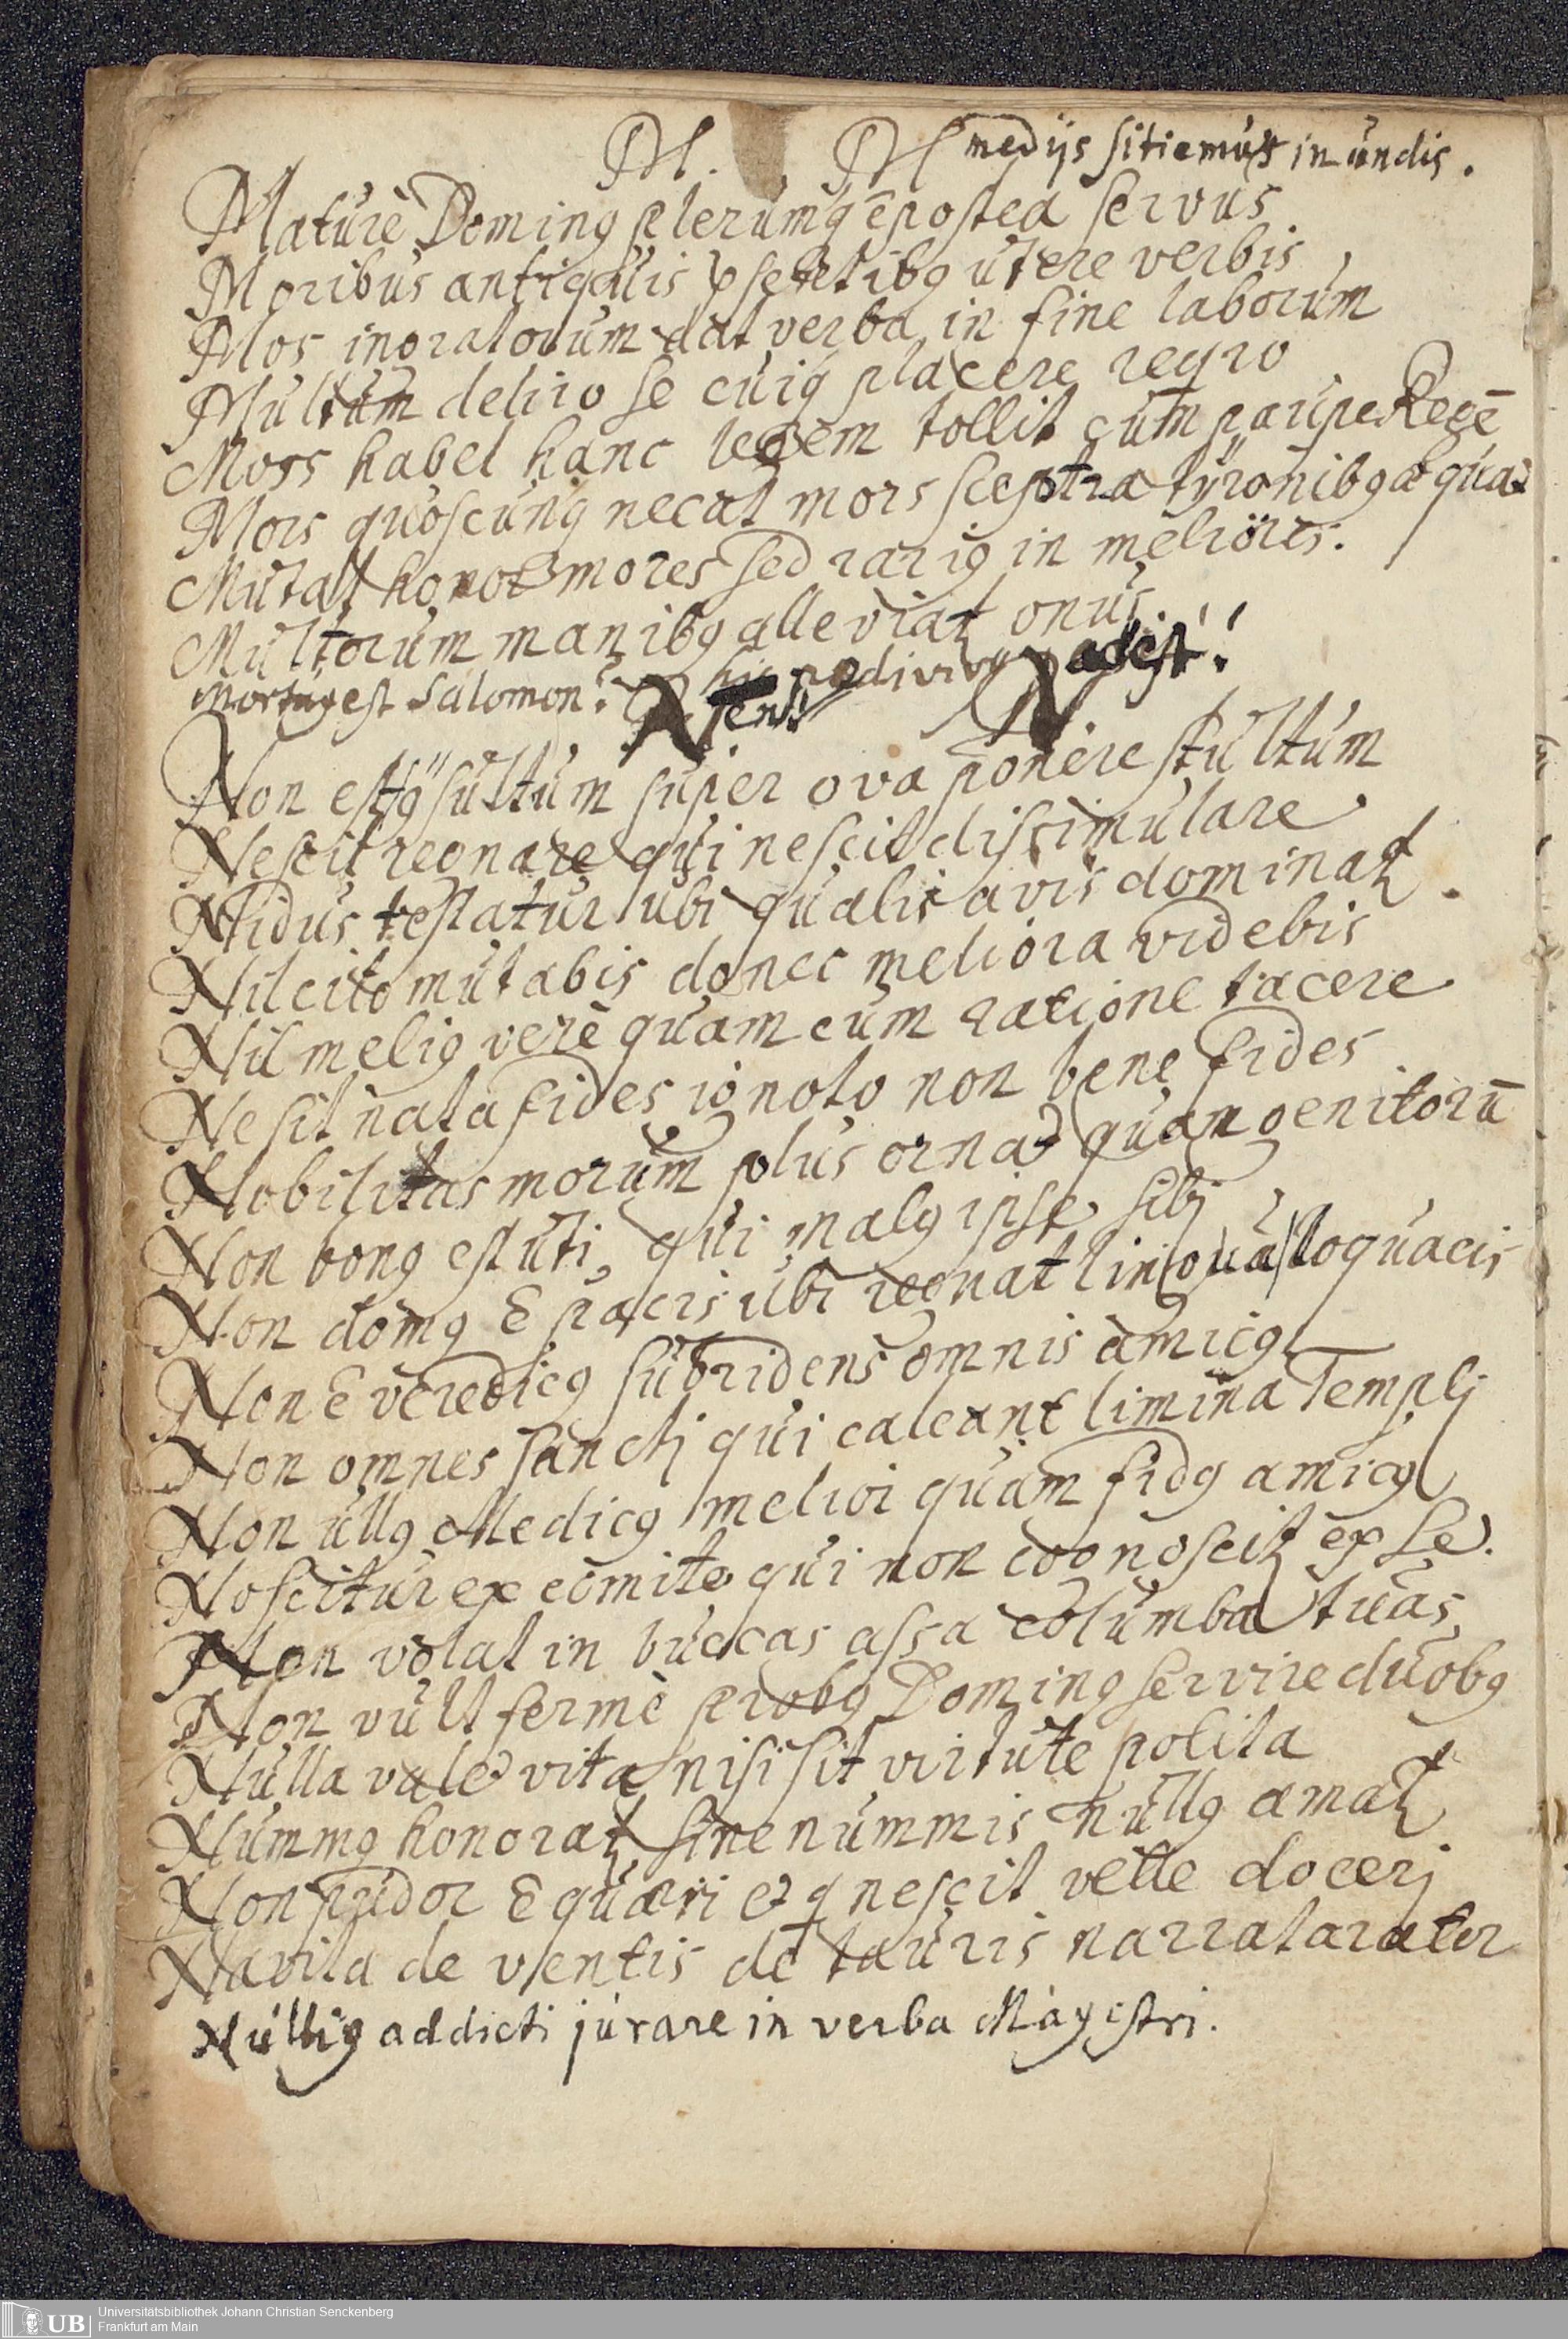 M. M medijs sitiemus in undis.
Maturè Dominꝰ plerumqꝫ ē postea servus
Moribus antiquis pſentibꝰ utere verbis
Mos ingratorum dat verba in fine laborum
Multum deliro se cuiqꝫ placere requiro
Mors habet hanc legem tollit cum paupe Regē
Mors quoscunqꝫ necat mors sceptra lÿgonibꝰ æquat
Mutat honor mores sed rariꝰ in meliores.
Multorum manibꝰ alleviat onus.
Mortuꝰ est Salomon? redivivꝰ adest!
N N
Non est ꝯsultum super ova ponere stultum
Nescit regnare qui nescit dissimulare
Nidus testatur ubi qualis avis dominat
Nil cito mutabis donec meliora videbis
Nil meliꝰ verè quam cum ratione tacere
Ne sit nata fides ignoto non bene fides
Nobilitas morum plus ornat quam genitorū
Non bonꝰ est uti, qui malꝰ ipse sibj
Non domꝰ ē pacis ubi regnat lingua loquacis
Non ē veredicꝰ subridens omnis amicꝰ
Non omnes sanctj qui calcant limina Templj
Non ullꝰ Medicꝰ melior quam fidꝰ amicꝰ
Noscitur ex comite qui non cognoscit ex se.
Non volat in buccas assa columba tuas
Non vult fermè probꝰ Dominꝰ servire duobꝰ
Nulla valet vita nisi sit virtute polita
Nummꝰ honorat sine nummis nullꝰ amat
Non pudor ē quæri et q nescit velle docerj
Navita de ventis de tauris narrat arator
Nulliꝰ addicti jurare in verba Magistri.
UB Universitätsbibliothek Johann Christian Senckenberg
Frankfurt am Main